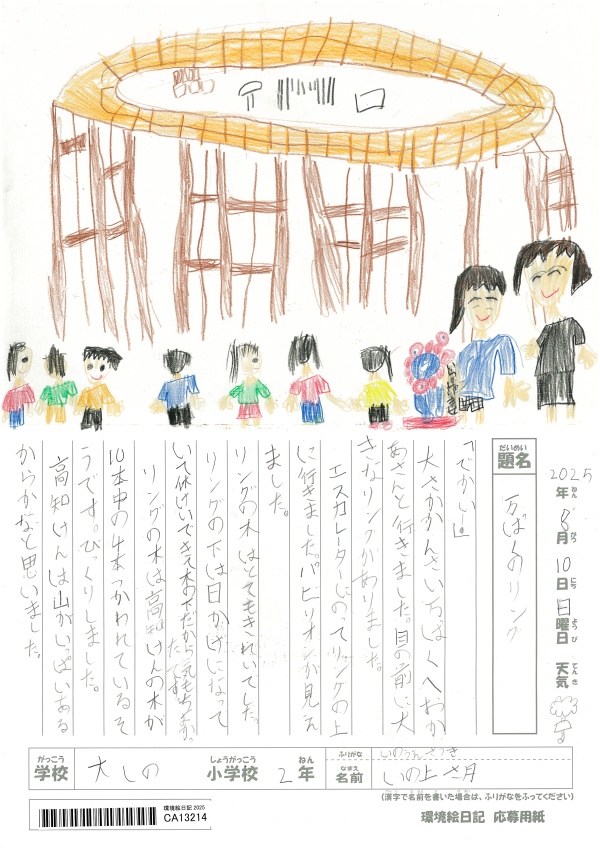 2025年8月10日日曜日 天気
ねん がつ にち ようび てんき
だいめい
題名
万ぱくのリング
「でかい」
大さかかんさいばんぱくへわか
あさんと行きました。目の前に大
きなリングがありました。
エスカレーターにのってリングの上
に行きました。パビリオンが見え
ました。
リングの木はとてもきれいでした。
リングの下は日かげになって
いて休けいできて木の下だから気もちよかっ
たです。
リングの木は高知けんの木が
10本中の4本つかわれているそ
うです。びっくりしました。
高知けんは山がいっぱいある
からかなと思いました。
がっこう
学校
大しの
しょうがっこう
小学校
2年
ねん
ふりがな
いのうえさつき
なまえ
名前
いの上 さ月
(漢字で名前を書いた場合は、ふりがなをふってください)
環境絵日記 2025
CA13214
環境絵日記 応募用紙